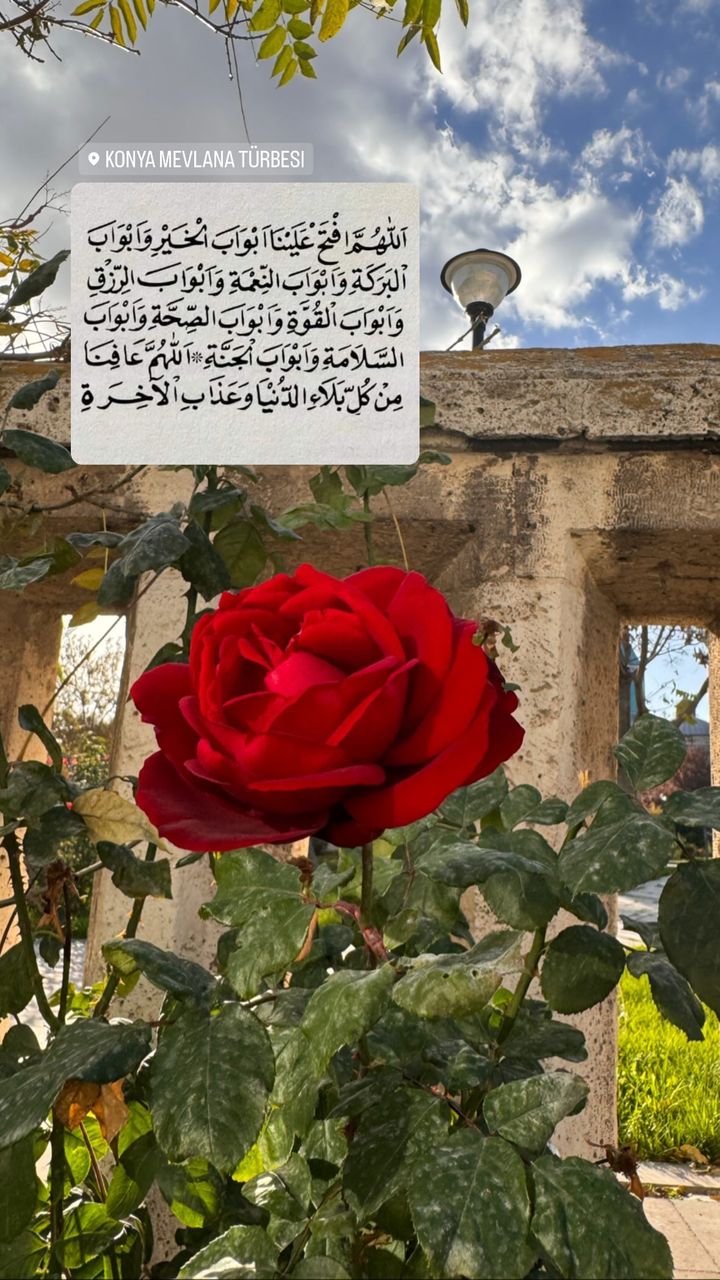 KONYA MEVLANA TÜRBESI
اَللّٰهُمَّ افْتَحْ عَلَيْنَا اَبْوَابَ الْخَيْرِ وَاَبْوَابَ
الْبَرَكَةِ وَاَبْوَابَ النِّعْمَةِ وَاَبْوَابَ الرِّزْقِ
وَاَبْوَابَ الْقُوَّةِ وَاَبْوَابَ الصِّحَّةِ وَاَبْوَابَ
السَّلَامَةِ وَاَبْوَابَ الْجَنَّةِ * اَللّٰهُمَّ عَافِنَا
مِنْ كُلِّ بَلَاءِ الدُّنْيَا وَعَذَابِ الْآخِرَةِ